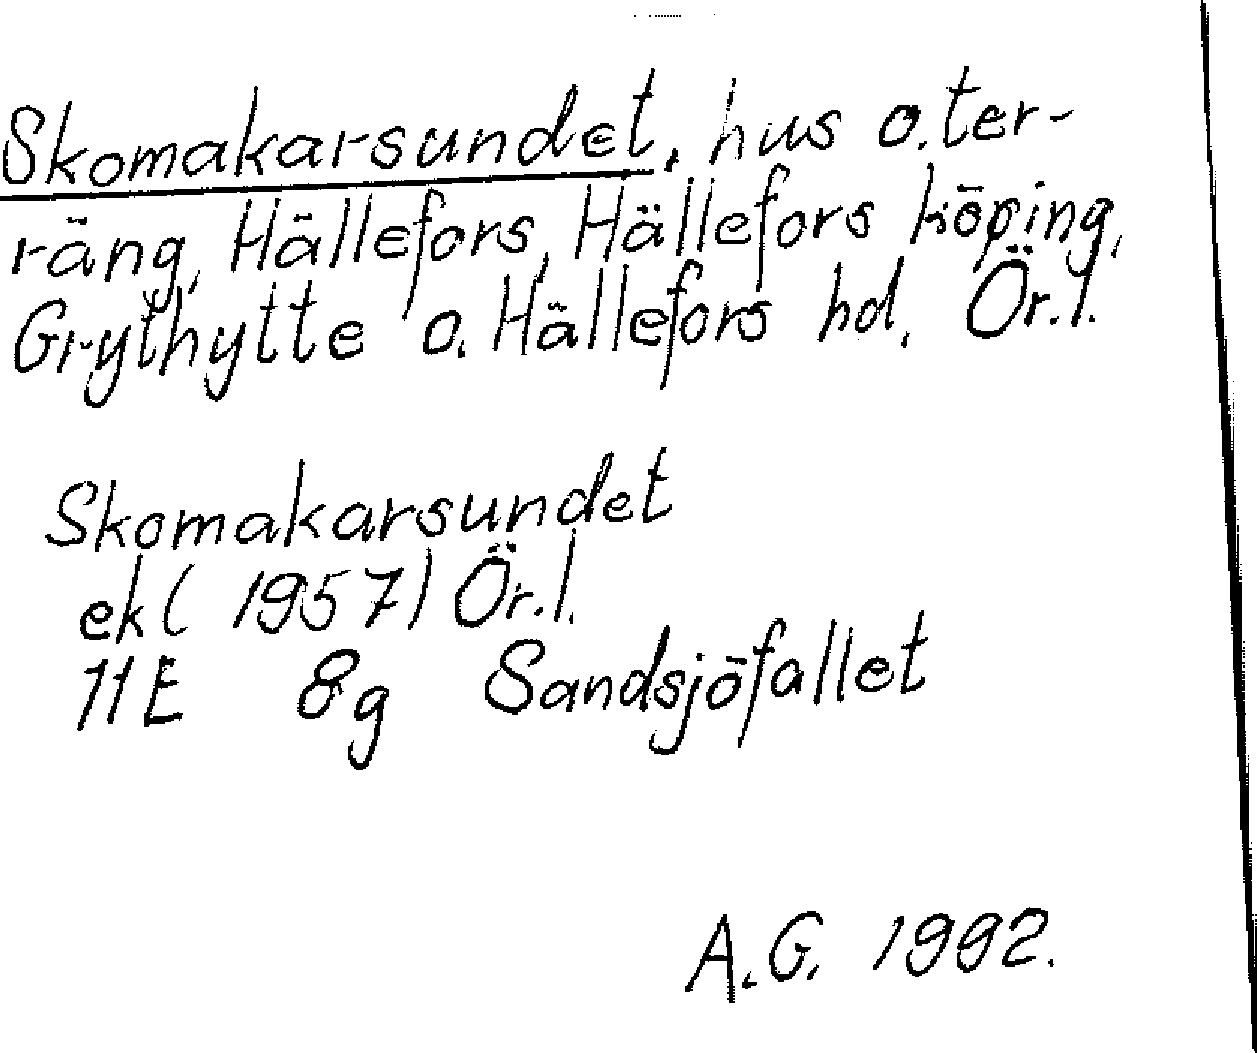 Skomakarsundet, hus o. ter-
räng, Hällefors, Hällefors köping,
Grythytte o. Hällefors hd. Ör. l.
Skomakarsundet
ek (1957) Ör. l.
11E 8g Sandsjöfallet
A.G. 1992.